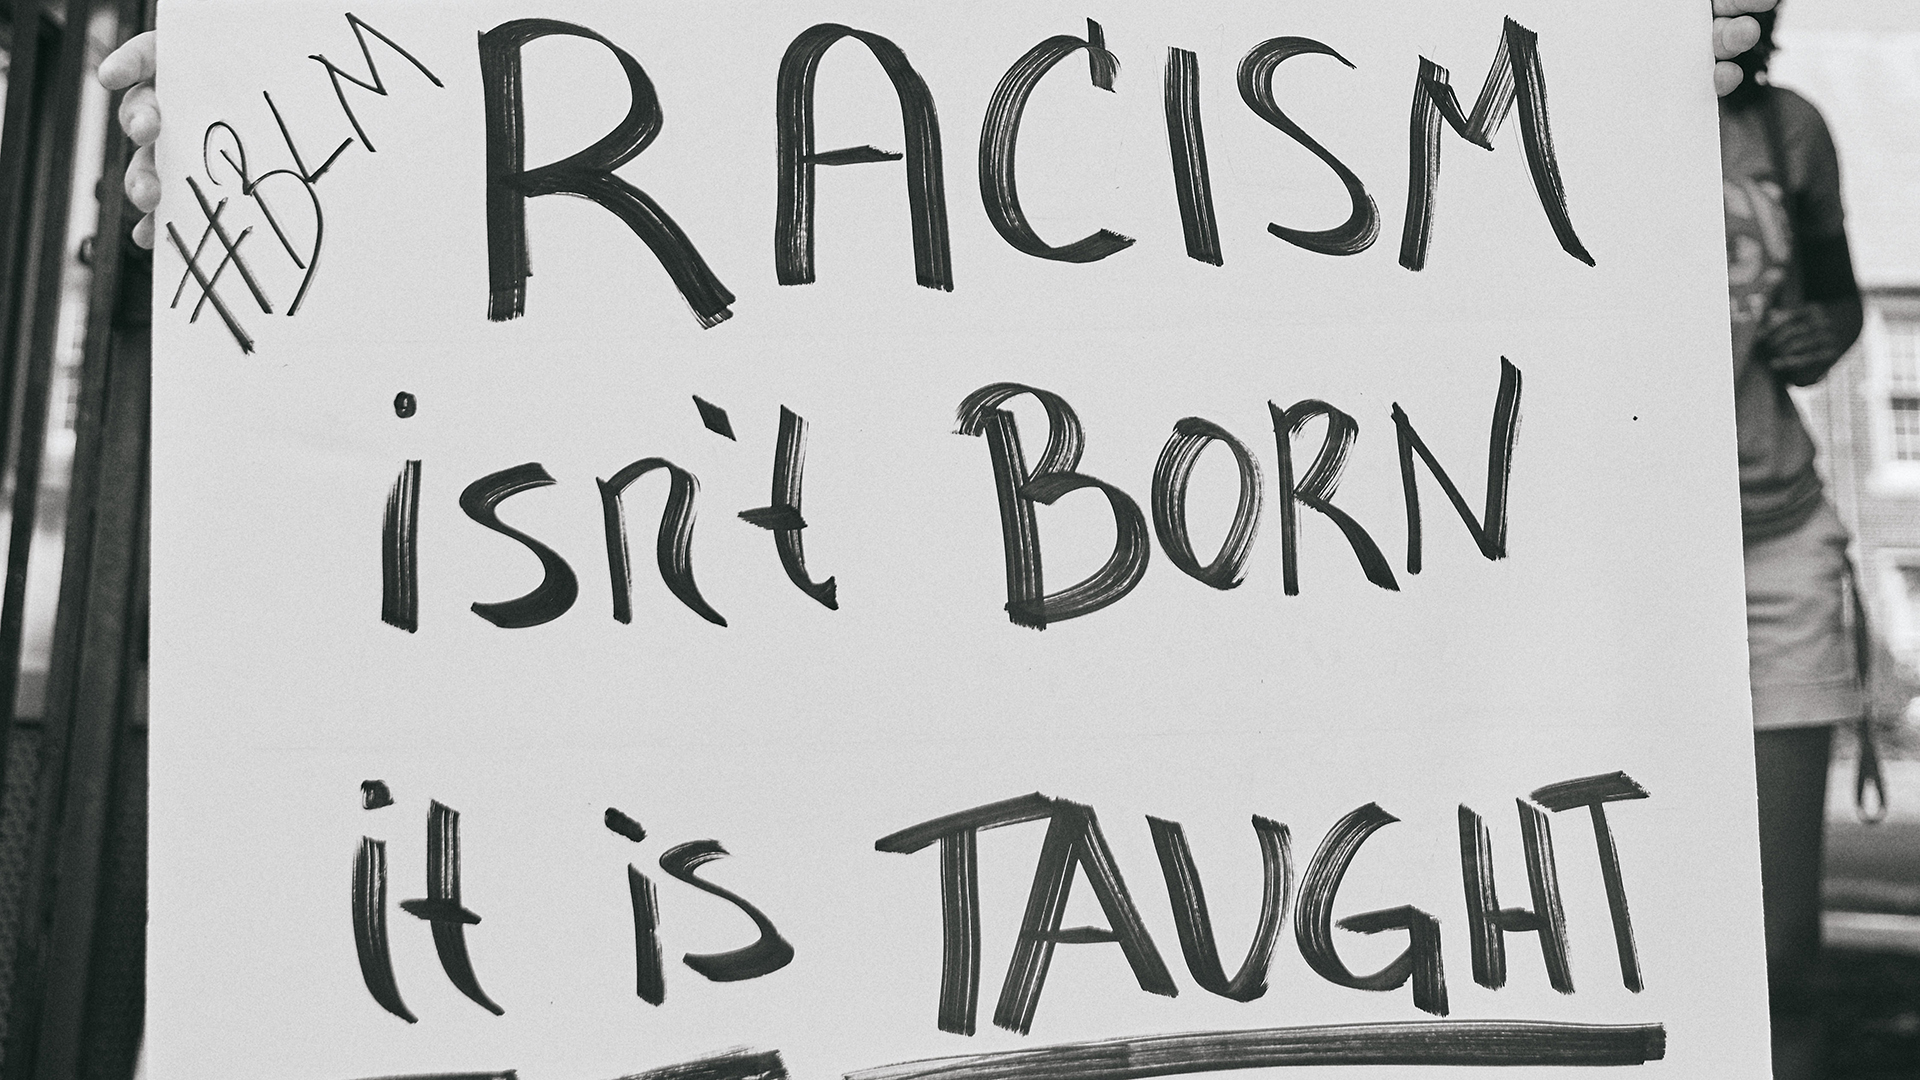 #BLM
RACISM
isn't BORN
it is TAUGHT